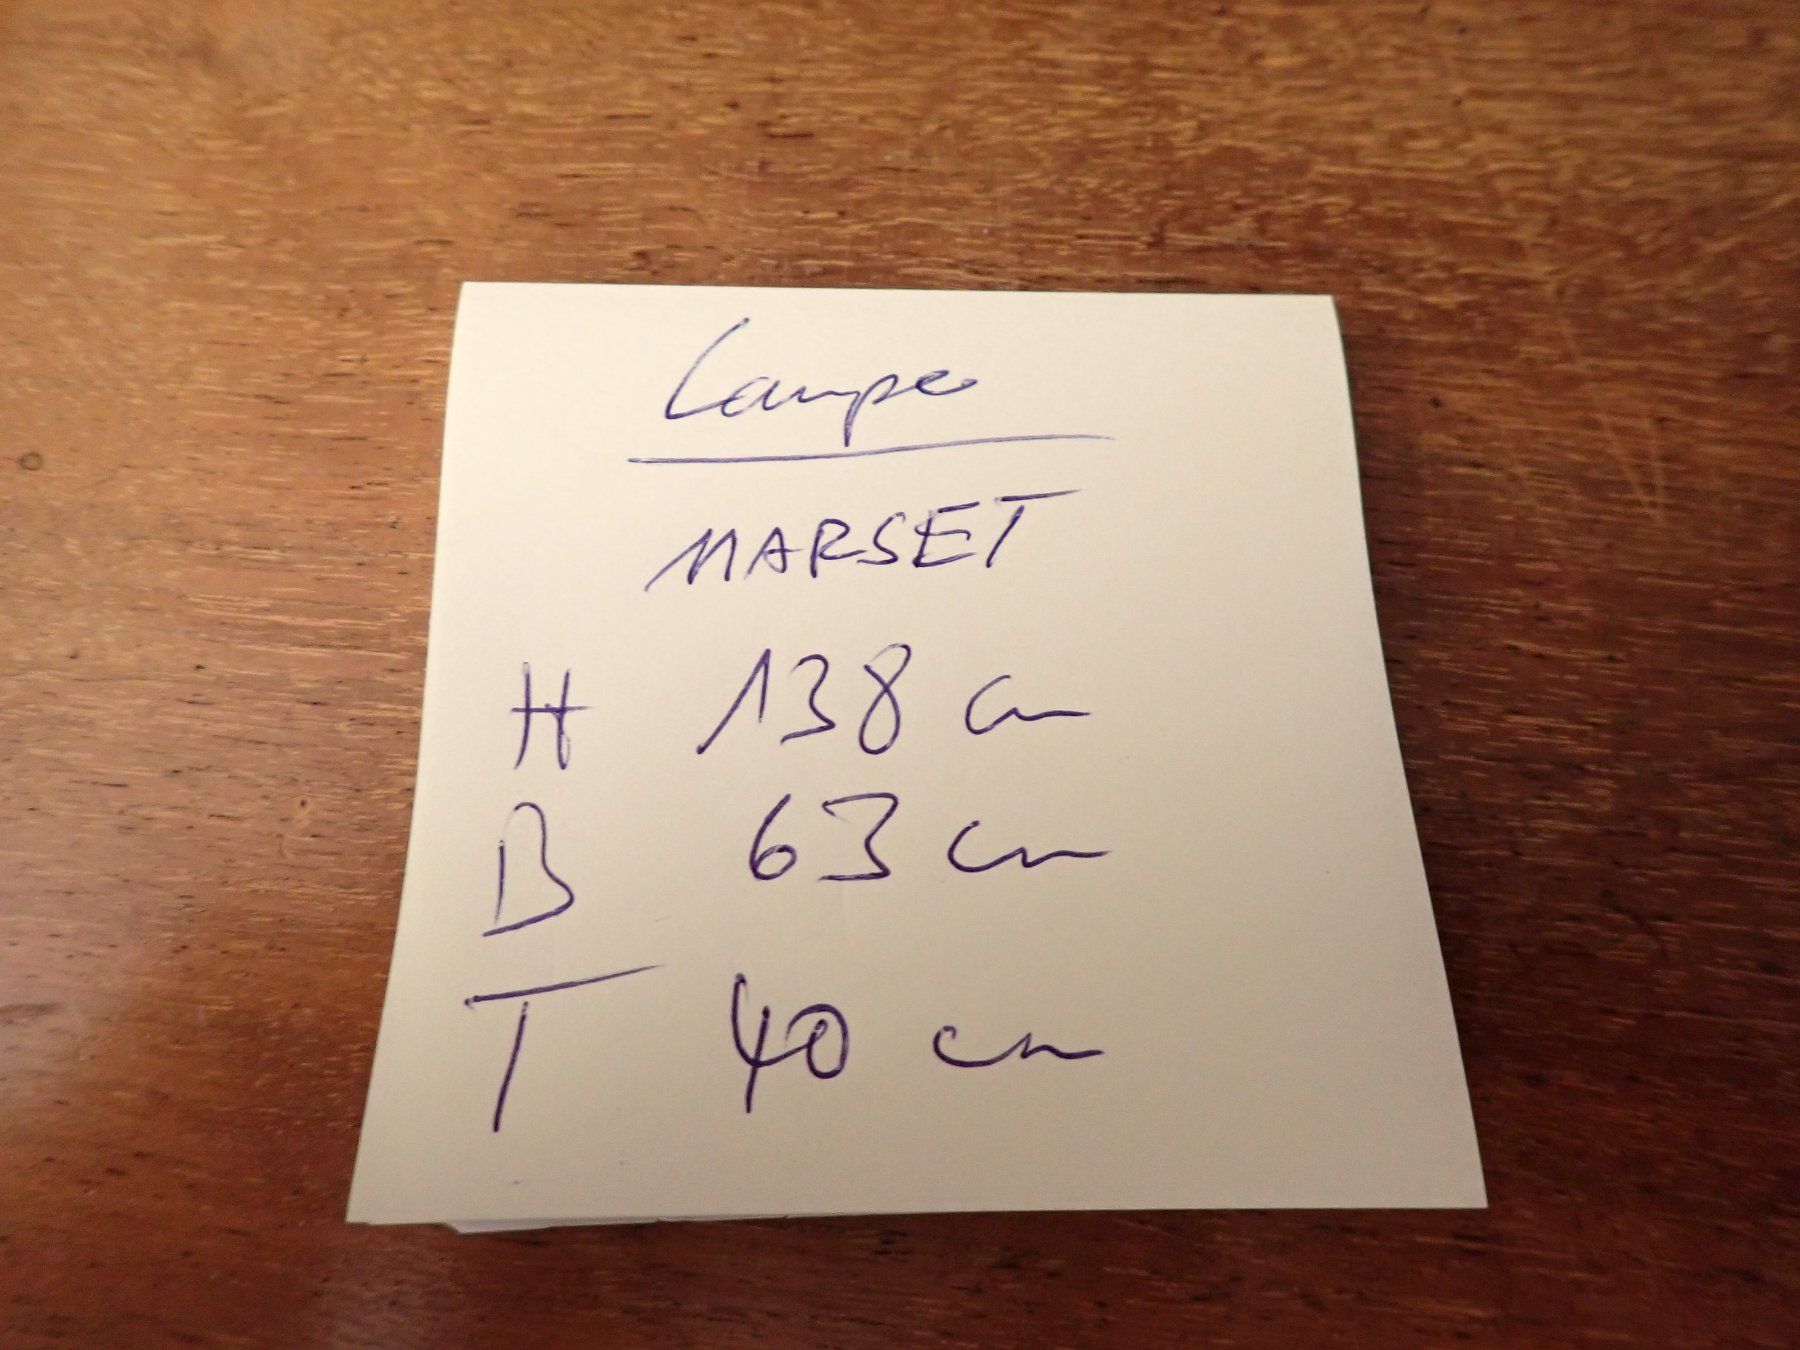 Lampe
MARSET
H 138 cm
B 63 cm
T 40 cm